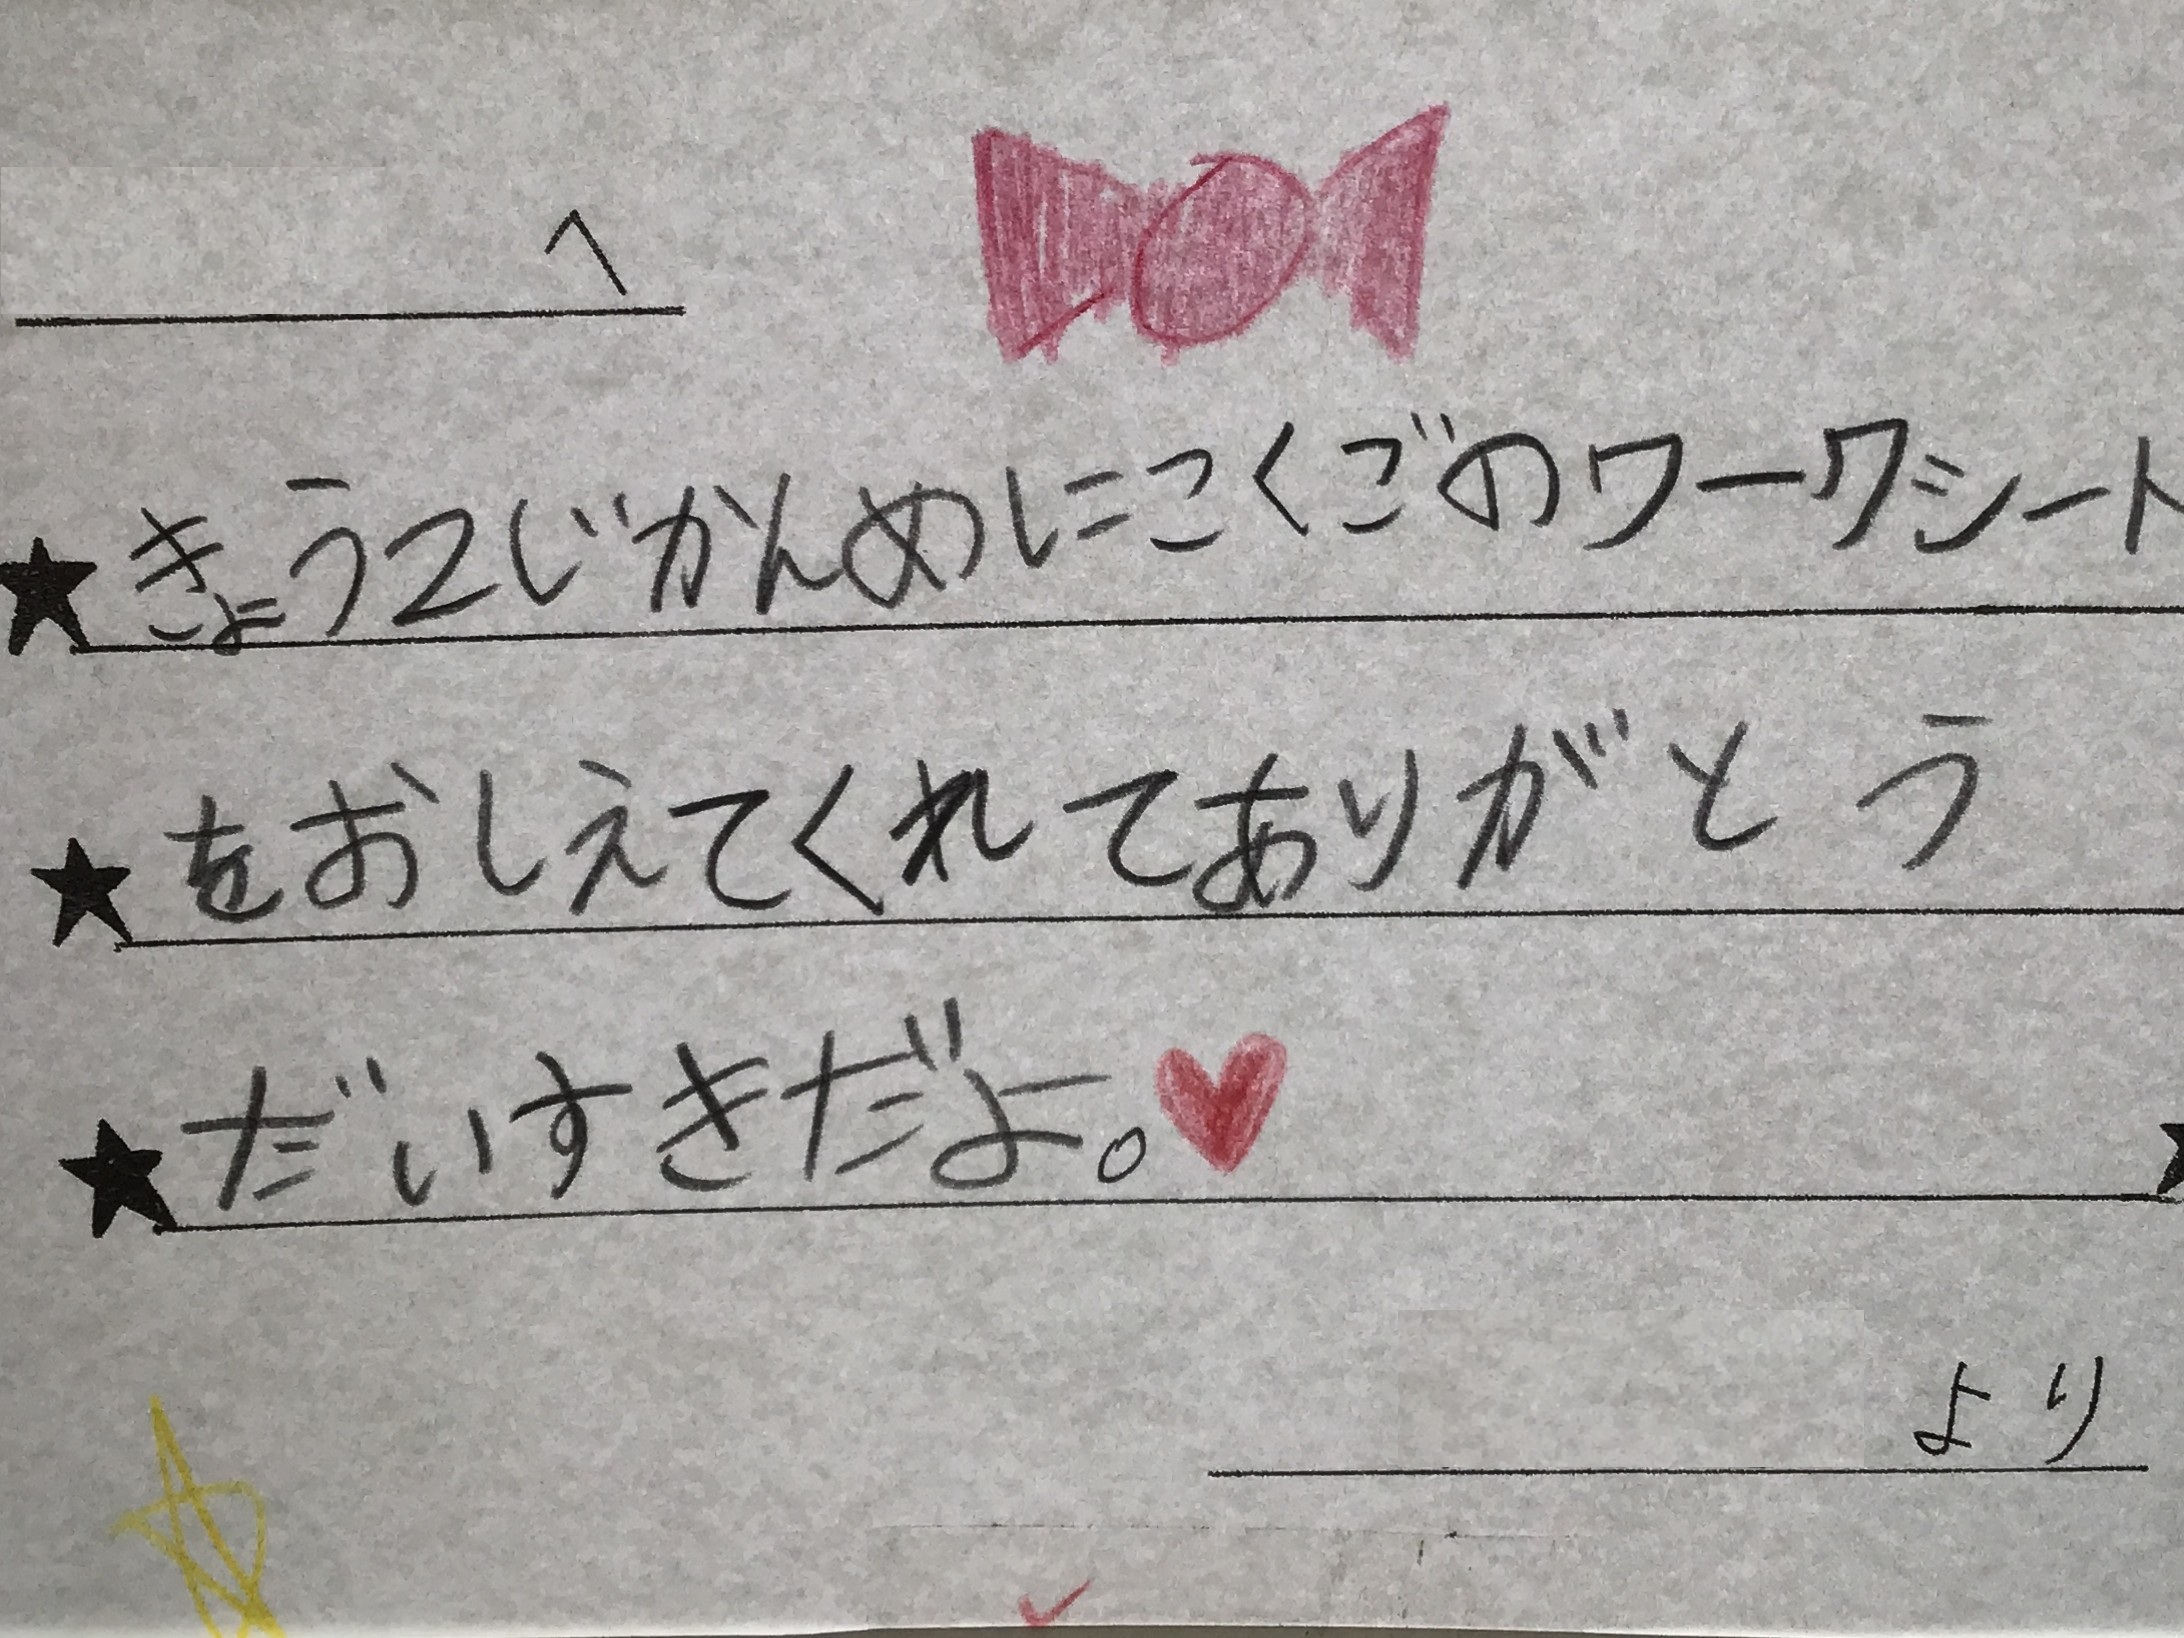 へ
きょう2じかんめにこくごのワークシート
をおしえてくれてありがとう
だいすきだよ。
より